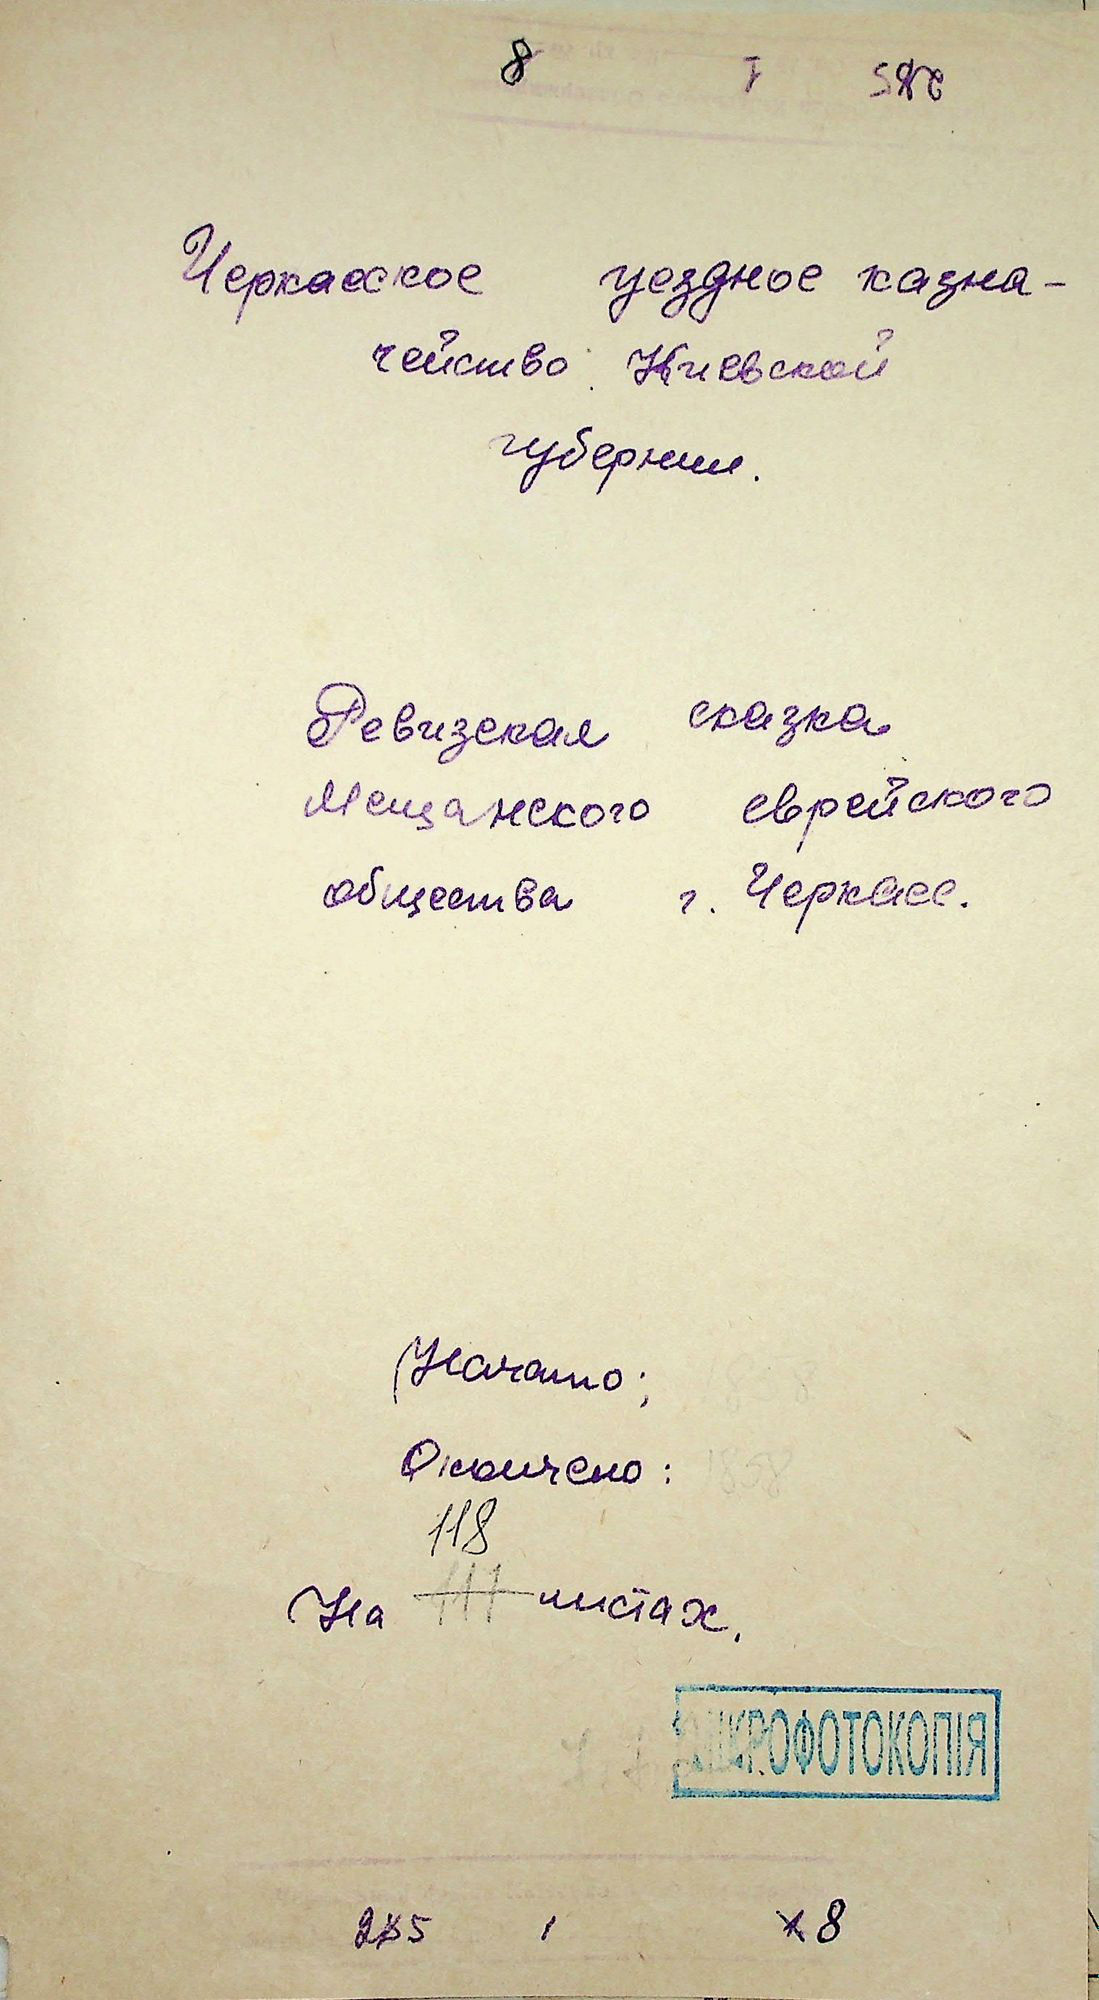 8 1
Черкасское уездное казна-
чейство Киевской
губернии.
Ревизская сказка
Мещанского еврейского
общества г. Черкасс.
Начато:
Окончено:
118
На 117 листах.
МІКРОФОТОКОПІЯ
1 8